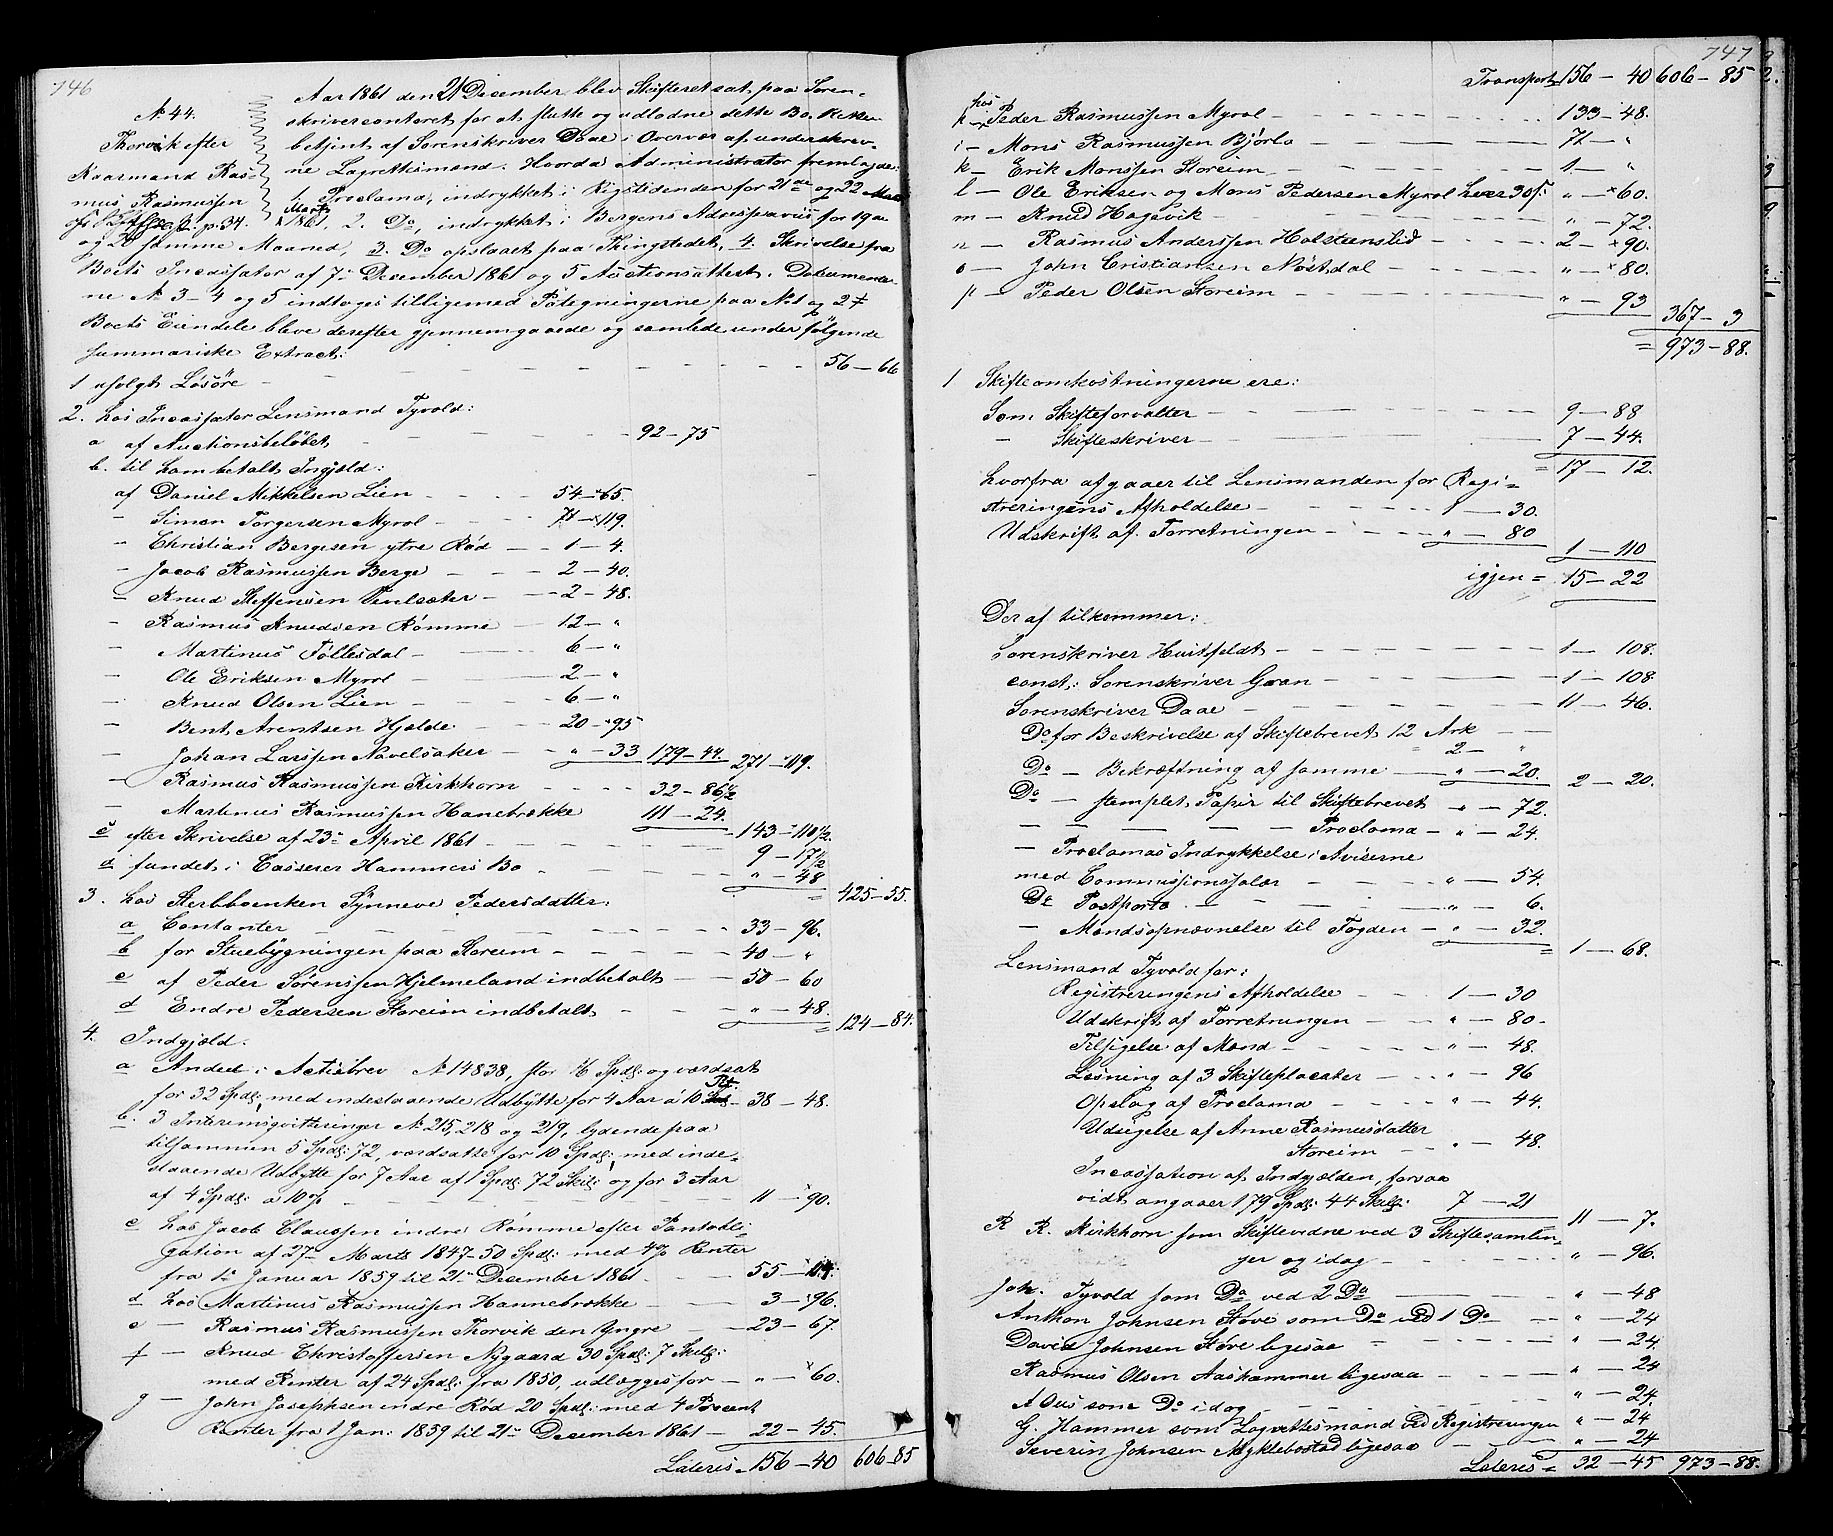 746
No 44.
Thorvik efter
Kaarmand Ras-
mus Rasmussen
p. 34.
Aar 1861 den 21 December blev Skifteret sat paa Soren-
skrivercontoret for at slutte og udlodne dette Bo. Retten
betjent af Sorenskriver Daae i Overvær af underskrev-
ne Lagrettesmænd. Hvorda Administrator fremlagde:
1. Proclama, indrykket i Rigstidenden for 21de og 22 Marts
1861, 2. Do, indrykket i Bergens Adresseavis for 19de
og 20 samme Maaned, 3. Do opslaaet paa Thingstedet, 4. Skrivelse fra
Boets Incassator af 7de December 1861 og 5 Auctionsattest. Documenter-
ne No 3-4 og 5 indtages tilligemed Paategningerne paa No 1 og 2 #
Boets Eiendele bleve derefter gjennemgaaede og samlede under følgende
summariske Extract:
1 usolgt Løsøre - 56 - 66
2. hos Incassator Lensmand Tyvold:
a af Auctionsbeløbet - 92 - 75
b. til ham betalt Ingjæld:
af Daniel Mikkelsen Lien - 54 - 65.
- Simon Torgersen Myrol - 71 - 119.
- Christian Bergesen ytre Rød - 1 - 4.
- Jacob Rasmussen Berge - 2 - 40.
- Knud Steffensen - 2 - 48.
- Rasmus Knudsen Rømme - 12 - "
- Martinus Føllesdal - 6 - "
- Ole Eriksen Myrol - 2 - "
- Knud Olsen Lien - 6 - "
- Bent Arentsen Hjelde - 20 - 95
- Johan Larssen Navelsaker - " - 33 179 - 44. 271 - 119.
- Rasmus Rasmussen Kirkhorn - 32 - 86 1/2
- Martinus Rasmussen Hanebrække 111 - 24. 143 - 110 1/2.
c efter Skrivelse af 23de April 1861 - 9 - 17 1/2
d fundet i Casserer Hammers Bo - " - 48 = 425 - 55.
3. hos Sterbboenken Synneve Pedersdatter:
a Contanter - 33 - 96.
b for Stuebygningen paa Storeim - 40 - "
c af Peder Sørenssen Hjelmeland indbetalt - 50 - 60
d Endre Pedersen Storeim indbetalt - " - 48. = 124 - 84.
4. Indgjæld:
a Andeel i Actiebrev No 14838, stor 16 Spdl: og værdsat
for 32 Spdl: med indestaaende Udbytte for 4 Aar á 10 Pct: - 38 - 48.
b. 3 Interimsqvitteringer No 215, 218 og 219, lydende paa
tilsammen 5 Spdl: 72, værdsatte for 10 Spdl: med inde-
staaende Udbytte for 7 Aar af 1 Spdl: 72 Skill: og for 3 Aar
af 4 Spdl: á 10% - 11 - 90.
c hos Jacob Claussen indre Rømme efter Pantobli-
gation af 27de Marts 1847 - 50 Spdl: med 4% Renter
fra 1de Januar 1859 til 21de December 1861. - 55 - 114:
d hos Martinus Rasmussen Hannebrække - 3 - 96.
e - Rasmus Rasmussen Thorvik den Yngre - 23 - 67.
f - Knud Christoffersen Nygaard 30 Spdl: 7 Skill:
med Renter af 24 Spdl: fra 1850, udlægges for - " - 60.
g - John Josephsen indre Rød 20 Spdl: med 4 Procent
Renter fra 1 Jan: 1859 til 21de December 1861 - 22 - 45.
Lateris - 156 - 40 606 - 85
747
Transport 156 - 40 606 - 85
h hos Peder Rasmussen Myrol - 133 - 48.
i - Mons Rasmussen Bjørlo - 71 - "
k - Erik Monssen Storeim - 1 - "
l - Ole Eriksen og Mons Pedersen Myrol hver 30 s: " - 60.
m - Knud Hagevik - " - 72.
n - Rasmus Anderssen Holsteenslid - 2 - 90.
o - John Cristiansen Nøstdal - " - 80.
p - Peder Olsen Storeim - " - 93 367 - 3
= 973 - 88.
1 Skifteomkostningerne ere:
Som Skifteforvalter - 9 - 88
- Skifteskriver - 7 - 44.
= 17 - 12.
hvorfra afgaaer til Lensmanden for Regi-
streringens Afholdelse - 1 - 30.
Udskrift af Forretningen - " - 80 1 - 110
igjen = 15 - 22
Der af tilkommer:
Sorenskriver Huitfeldt - 1 - 108.
const: Sorenskriver Gran - 1 - 108.
Sorenskriver Daae - 11 - 46.
Do for Beskrivelse af Skiftebrevet 12 Ark - -
2 - "
Do - Bekræftning af samme - " - 20. 2 - 20.
Do - stemplet Papir til Skiftebrevet " - 72.
- - - - - Proclama - " - 24.
- Proclamas Indrykkelse i Aviserne
med Commissionssalær - " - 54.
Do Postporto - " - 6.
- Mandsopnævnelse til Fogden - " - 32. = 1 - 68.
Lensmand Tyvold for:
Registreringens Afholdelse - 1 - 30
Udskrift af Forretningen - " - 80 -
Tilsigelse af Mænd - " - 48.
Læsning af 3 Skifteplacater - " - 96
Opslag af Proclama - " - 44.
Udsigelse af Anne Rasmusdatter
Storeim - " - 48.
Incassation af Indgjælden, forsaa
vidt angaaer 179 Spdl: 44 Skill: 7 - 21 11 - 7.
R R. Kirkhorn som Skiftevidne ved 3 Skiftesamlin-
ger og idag - " - 96.
Joh. Tyvold som Do ved 2 Do - " - 48
Anthon Johnsen Støve som Do ved 1 Do - " - 24
David Johnsen Støve ligesaa - " - 24.
Rasmus Olsen Aashammer ligesaa - " - 24
A Ous som Do idag - " - 24.
G. Hammer som Lagrettesmand ved Registreringen " - 24
Severin Johnsen Myklebostad ligesaa - " - 24
Lateris = 32 - 45 973 - 88.